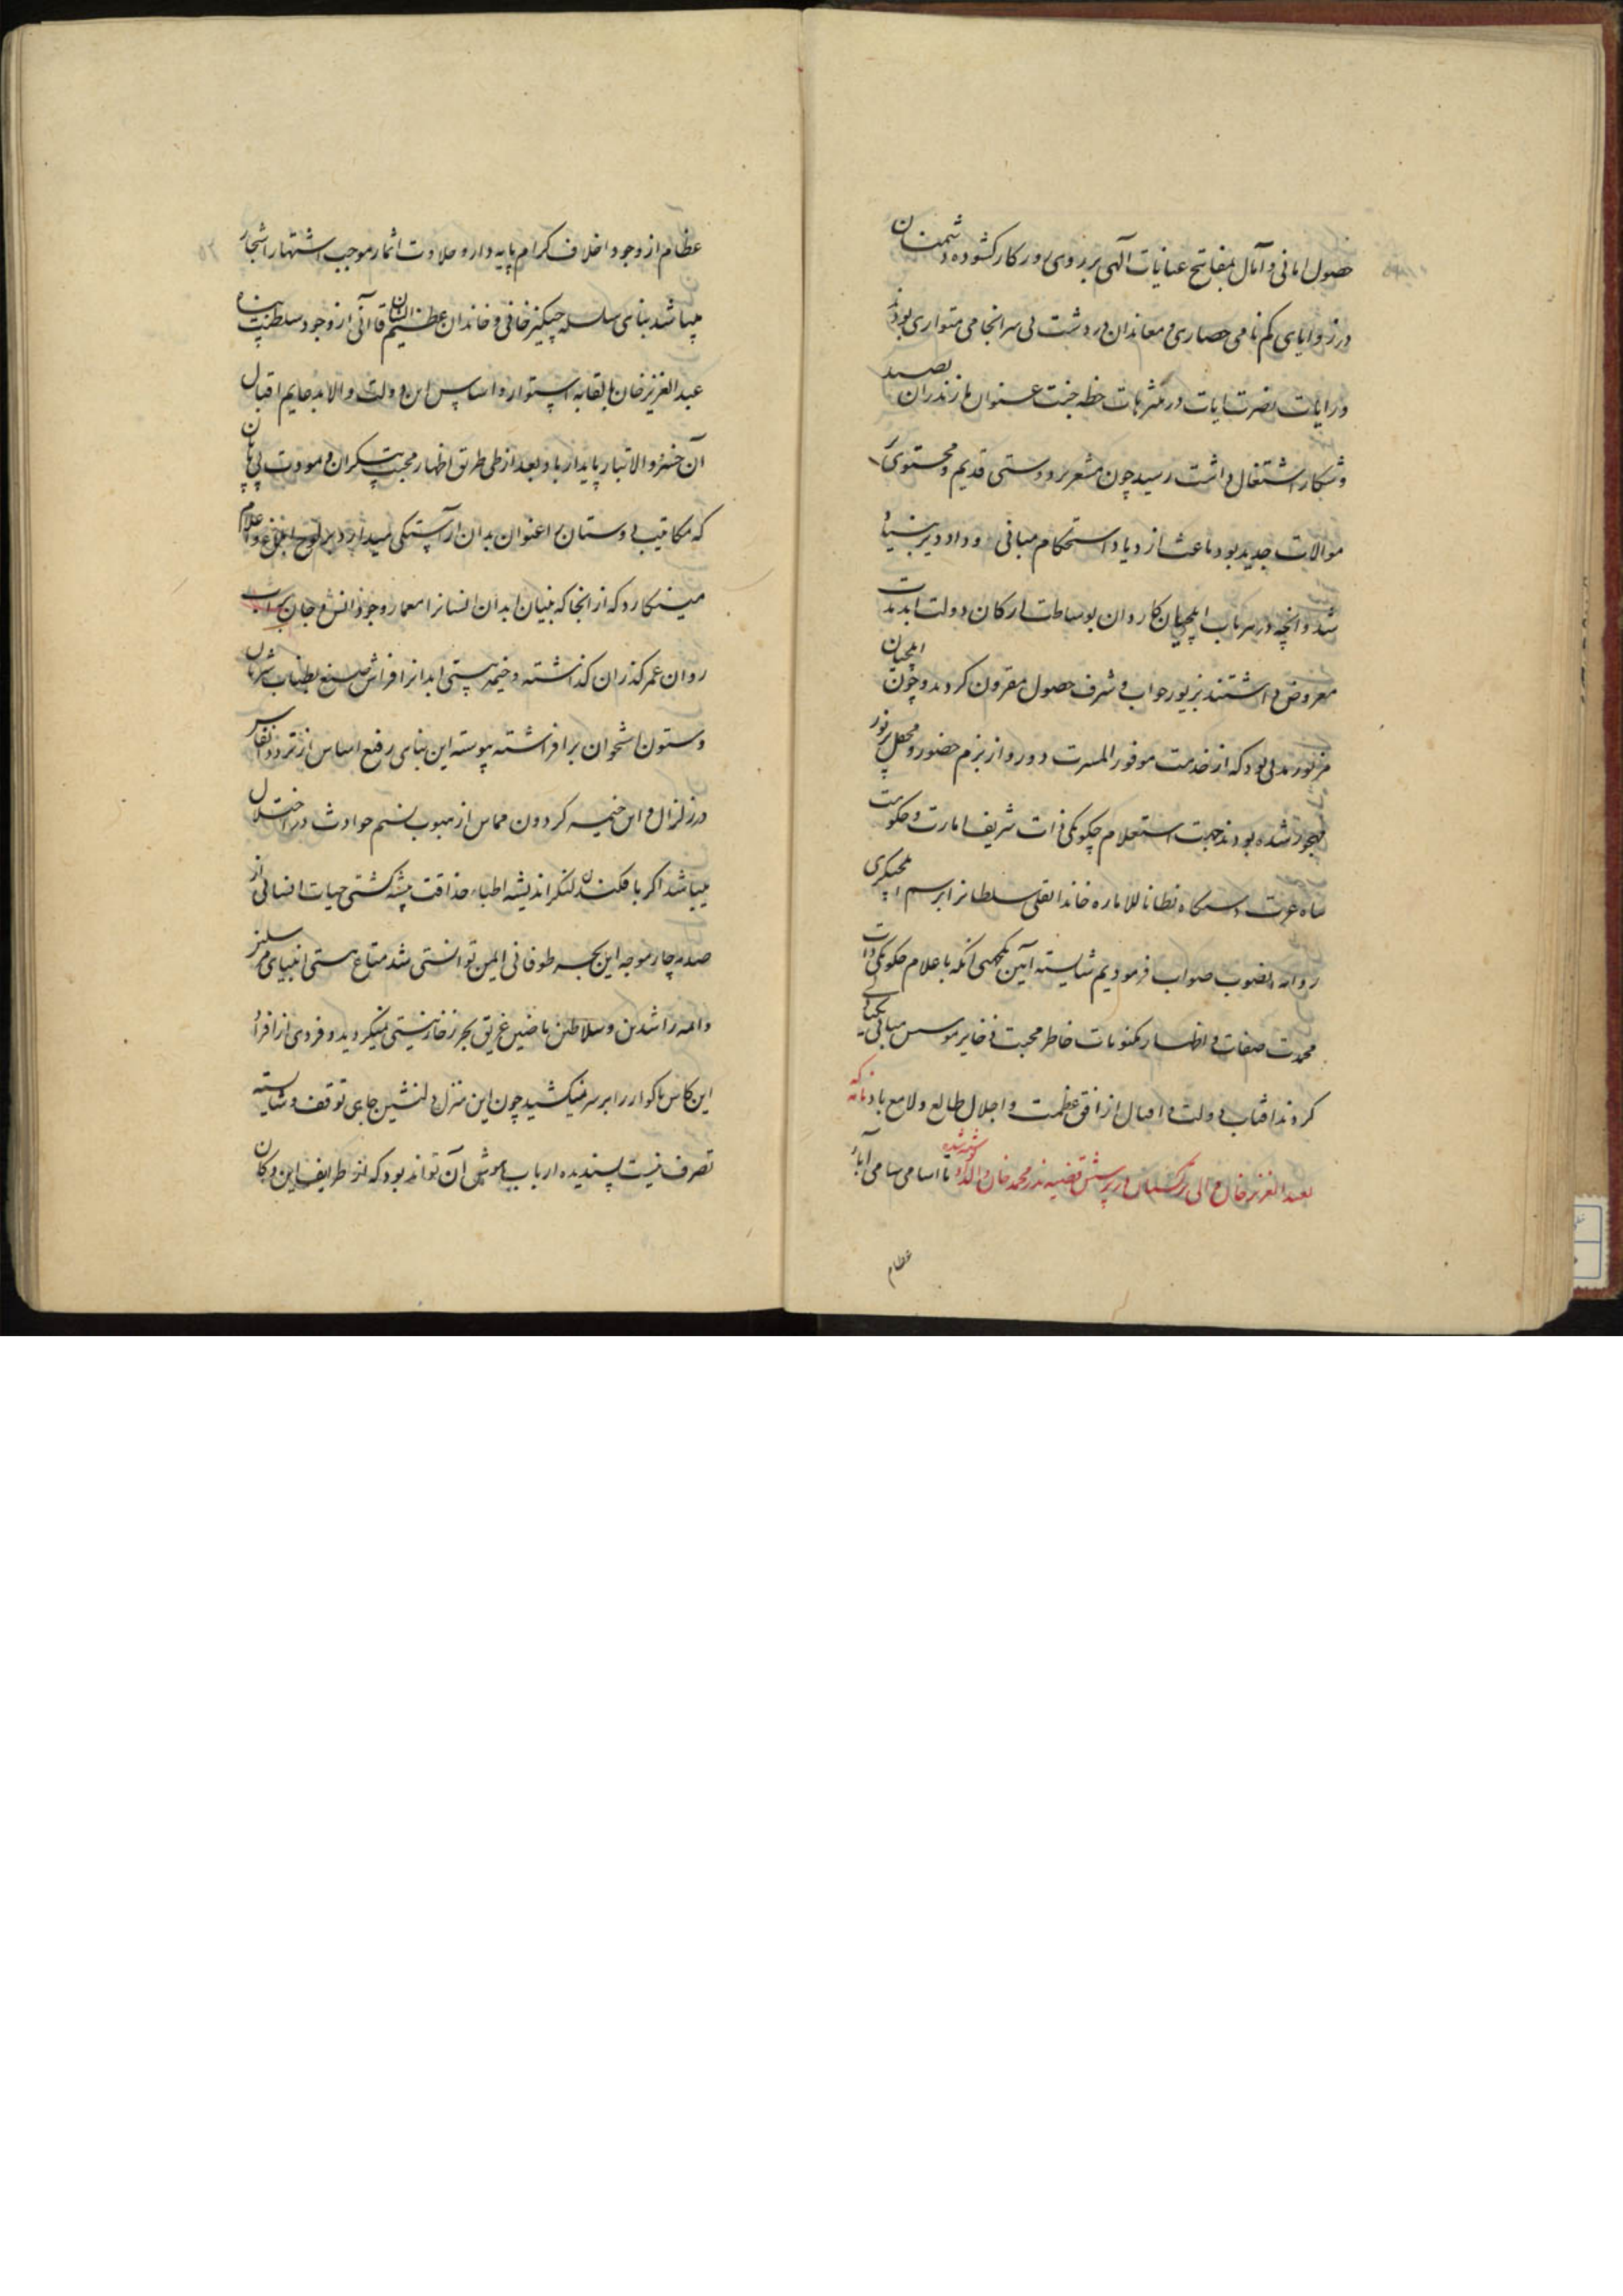 حصول امانی و آمال بمفاتیح عنایات آلهی بر روی روزکار کشوده و دشمنان
در زوایای کم نامی حصاری و معاندان در دشت بی سرانجامی متواری بودند
و رایات نصرت ایات در متنزهات خطه جنت عنوان مازندران بصید
و شکار اشتغال داشت رسید چون مشعر بر دوستی قدیم و محتوی بر
موالات جدید بود باعث ازدیاد استحکام مبانی وداد دیرینه
شد و انچه در هر باب ایلچیان کاردان بوساطت ارکان دولت ابدمدت
معروض داشتند بزیور جواب و شرف حصول مقرون کردید و چون ایلچیان
مزبور مدتی بود که از خدمت موفور المسرت دور و از بزم حضور و محفل پرنور
مهجور شده بودند جهت استعلام چکونکی ذات شریف امارت و حکومت
پناه عزت دستکاه نظاما للاماره خاندانقلی سلطانرا برسم ایلچیکری
روانه بصوب صواب فرمودیم شایسته آیین یکجهتی انکه باعلام چکونکی ذات
محمدت صفات و اظهار مکنونات خاطر محبت ذخایر موسس مبانی یکتایی
کردند افتاب دولت و اقبال از افق عظمت و اجلال طالع و لامع باد نامه که
بعبد العزیز خان والی ترکستان در پرسش قضیه نذر محمد خان والد او نوشته شده تا اسامی سامی آباء
عظام
عظام از وجود اخلاف کرام پایه دار و حلاوت اثمار موجب اشتهار اشجار
میباشد بنای سلسله چنکیز خانی و خاندان عظیم الشان قاآنی از وجود سلطنت پناه
عبد العزیز خان بابقا به استوار و اساس این دولت والا بدعایم اقبال
آن خسرو والاتبار پایدار باد بعد از طی طریق اظهار محبت بیکران و مودت بی پایان
که مکاتیب دوستان را عنوان بدان آراستکی میدارد بر لوح ابلاغ و اعلام
مینکارد که از انجا که بنیان ابدان انسانرا معمار وجود دانش و جان بر آب
روان عمر کذران کذاشته و خیمه هستی ابدانرا فراش صنع بطناب شریان
و ستون استخوان برافراشته پیوسته این بنای رفیع اساس از تردد انفاس
در زلزال و این خیمه کردون مماس از هبوب نسیم حوادث در اختلال
میباشد اکر بافکندن لنکر اندیشه اطباء حذاقت پیشه کشتی حیات انسانی از
صدمه چارموجه این بحر طوفانی ایمن توانستی شد متاع هستی انبیای مرسلین
و ائمه راشدین و سلاطین ماضین غریق بحر زخار نیستی نمیکردید و فردی از افراد
این کاس ناکوار را بر سر نمیکشید چون این منزل دلنشین جای توقف و شایسته
تصرف نیست پسندیده ارباب هوش آن تواند بود که از طرایف این دکان